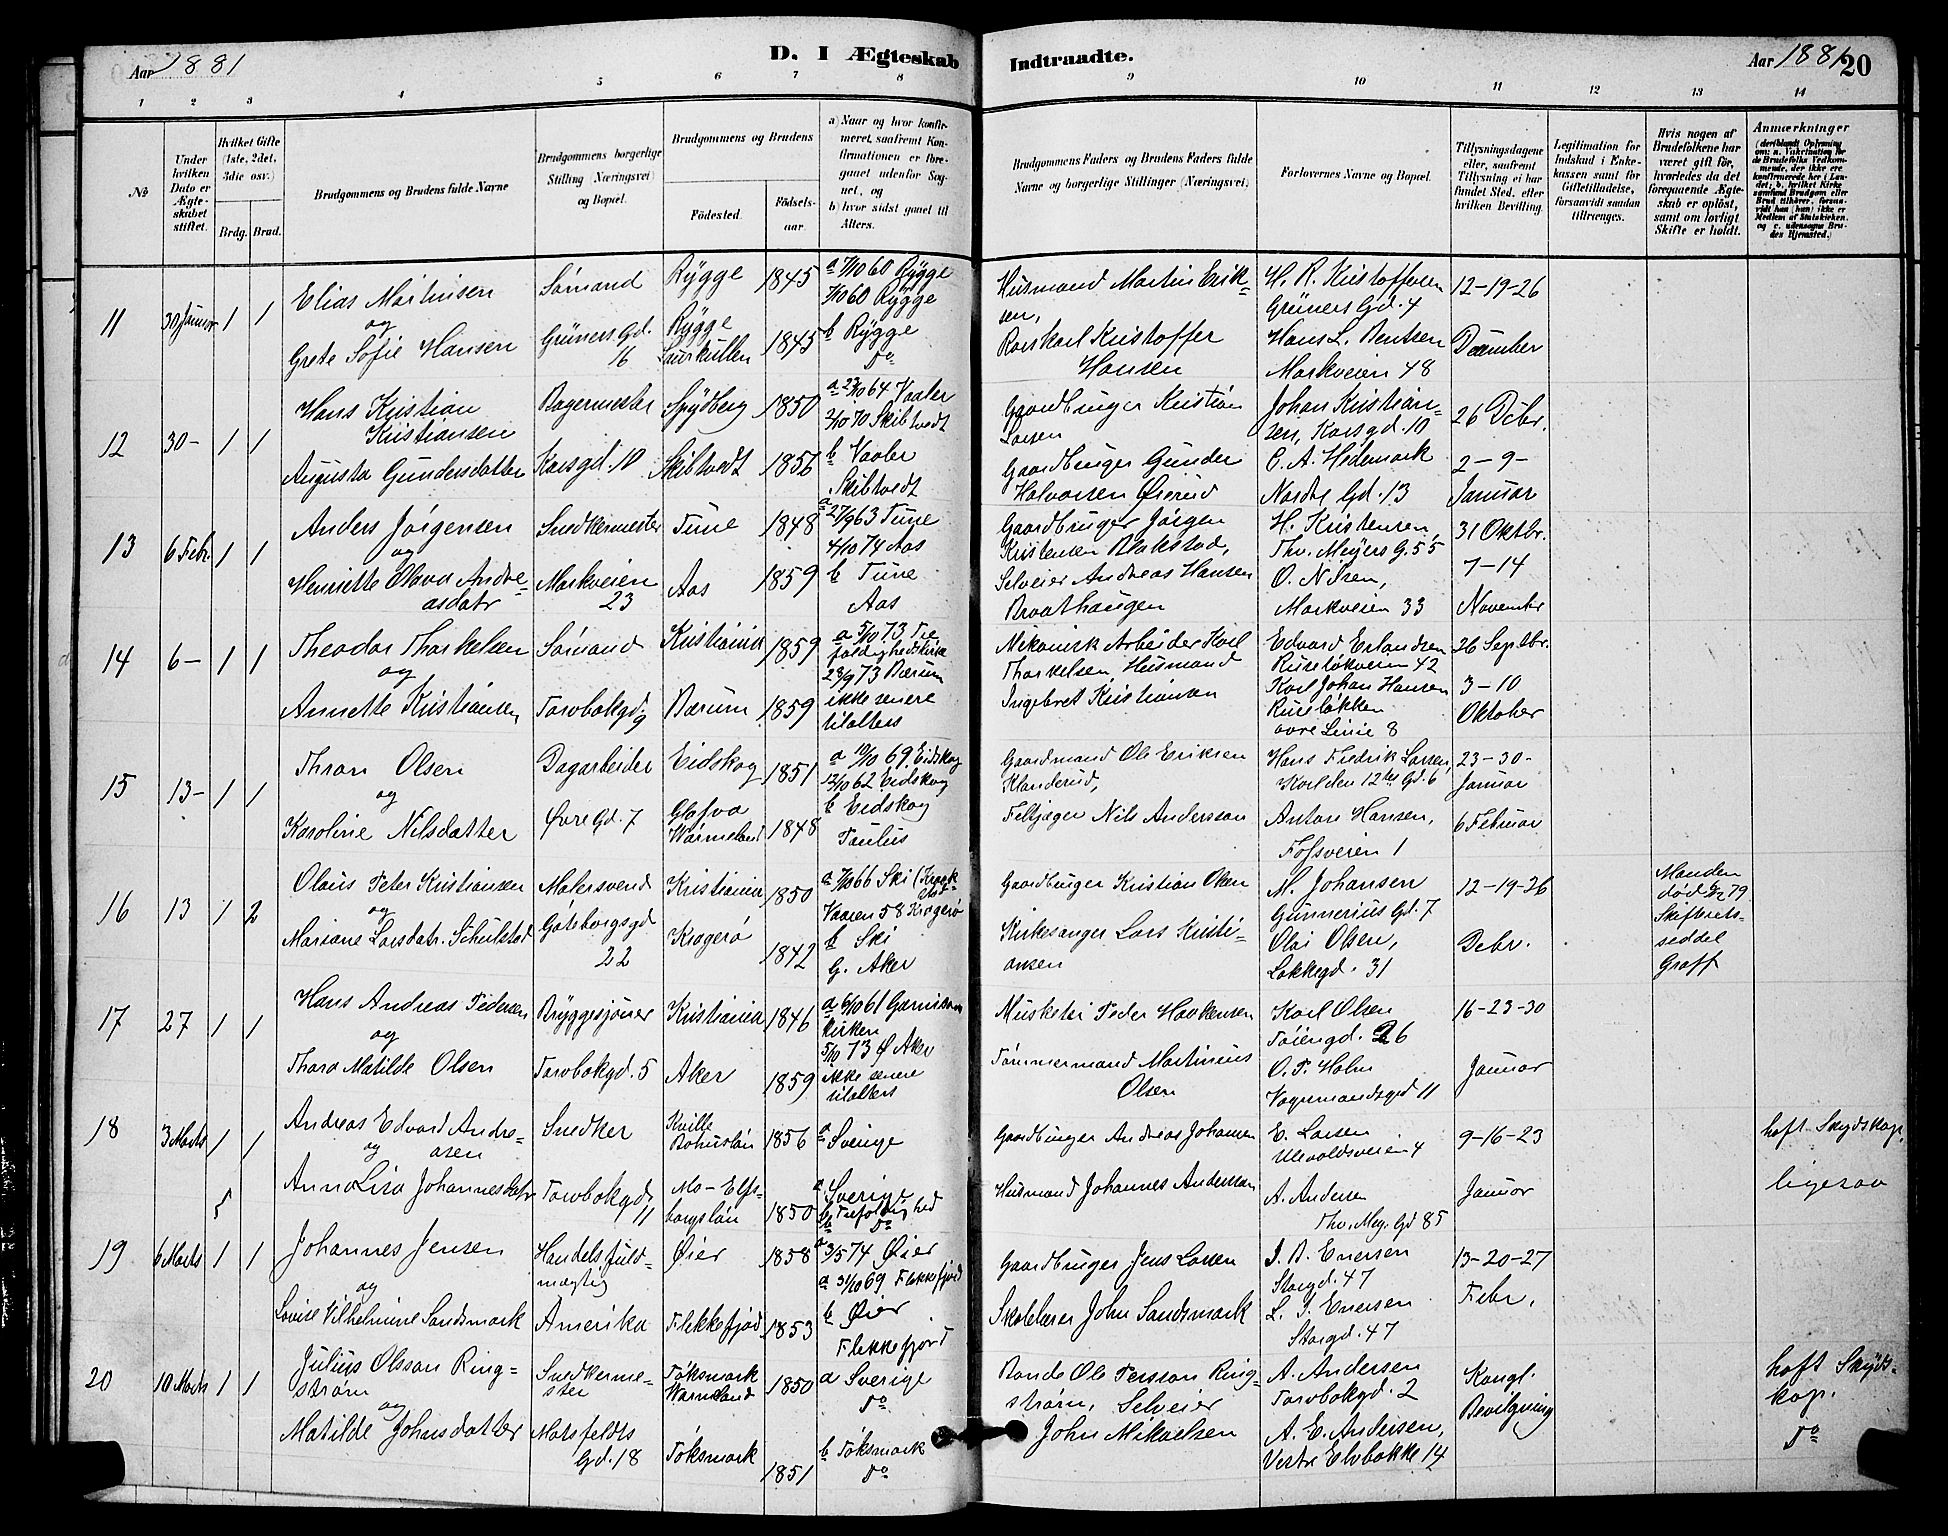 Aar 1881
D. I Ægteskab
Indtraadte.
Aar 1881
20
1 2 3 4 5 6 7 8 9 10 11 12 13 14
No
Under hvilken Dato er Ægteskabet stiftet.
Hvilket Gifte (1ste, 2det, 3die osv.)
Brdg. Brud.
Brudgommens og Brudens fulde Navne
Brudgommens borgerlige Stilling (Næringsvei) og Bopæl.
Brudgommens og Brudens
Fødested.
Fødselsaar.
a) Naar og hvor konfirmeret, saafremt Konfirmationen er foregaaet udenfor Sognet, og
b) hvor sidst gaaet til Alters.
Brudgommens Faders og Brudens Faders fulde Navne og borgerlige Stillinger (Næringsvei)
Forlovernes Navne og Bopæl.
Tillysningsdagene eller, saafremt Tillysning ei har fundet Sted, efter hvilken Bevilling.
Legitimation for Indskud i Enkekassen samt for Giftetilladelse, forsaavidt saadan tiltrænges.
Hvis nogen af Brudefolkene har været gift før, hvorledes da det foregaaende Ægteskab er opløst, samt om lovligt Skifte er holdt.
Anmærkninger
(deriblandt Oplysning om: a. Vakcination for de Brudefolks Vedkommende, der ikke ere konfirmerede her i Landet; b. hvilket Kirkesamfund Brudgom eller Brud tilhører, forsaavidt han (hun) ikke er Medlem af Statskirken, og c. udensogns Brudes Hjemsted.)
11 30 Januar 1 1
Elias Martinsen
og
Grete Sofie Hansen
Sømand
Grüners Gd.
16
Rygge 1845
Rygge
1845
a 7/10 60 Rygge
7/10 60 Rygge
b Rygge
Do
Husmand Martin Eriksen,
Kristoffer
Hansen
H. R. Kristoffersen
Grüners Gd. 4
Hans L. Bentsen
Markveien 48
12-19-26
December
12 30- 1 1
Hans Kristian
Kristiansen
Augusta Gundersdatter
Bagermester
Korsgd. 10
Spydberg 1850
Skibtvedt 1856
64 Vaaler
2/10 70 Skibtvedt
b Vaaler
Skibtvedt
Gaardbruger Kristian
Larsen
Gaardbruger Gunder
Halvorsen Øierud
Johan Kristiansen, Korsgd. 10
C. A. Hedemark
Nordre Gd. 13
26 Debr.
2-9-
Januar
13 6 Febr. 1 1
Anders Jørgensen
og
Henriette Olava Andreasdatr
Snedkermester
Markveien
23
Tune 1848
Aas 1859
a 27/9 63 Tune
4/10 74 Aas
b Tune
Aas
Gaardbruger Jørgen
Kristensen Blakstad,
Selveier Andreas Hansen
Braathaugen
H. Kristensen,
Thv. Meyers G. 55
O. Nilsen,
Markveien 33
31 Oktbr.
7-14
Novembr
14 6- 1 1
Theodor Thorkelsen
og
Annette Kristiansen
Sømand
Torvbakgd 9
Kristiania 1859
Bærum 1859
a 5/10 73 Trefoldighedskirke
28/9 73 Bærum
ikke senere
tilalters
Mekanisk Arbeider Karl
Thorkelsen, Husmand
Ingebret Kristiansen
Edvard Erlandsen
Ruseløkveien 42
Karl Johan Hansen
Ruseløkken
øvre Linie 8
26 Septbr.
3-10
Oktober
15 13- 1 1
Thron Olsen
og
Karoline Nilsdatter
Dagarbeider
Øvre Gd. 7
Eidskog 1851
Glafva
Wärmeland 1848
a 10/10 69 Eidskog
12/10 62 Eidskog
b Eidskog
Paulus
Gaardmand Ole Eriksen
Klanderud,
Feltjæger Nils Andersson
Hans Fredrik Larsen,
Karl den 12tes Gd. 6
Anton Hansen,
Fossveien 1
23-30-
Januar
6 Februar
16 13 1 2
Olaus Peter Kristiansen
og
Mariane Larsdatr. Schulstad
Malersvend
Göteborgsgd
22
Kristiania 1850
Kragerø 1842
a 7/10 66 Ski
Vaaren 58 Kragerø
b Ski
G. Aker
Gaardbruger Kristian Olsen
Kirkesanger Lars Kristiansen
M. Johansen
Gunnerius Gd. 7
Olai Olsen,
Løkkegd. 31
12-19-26
Debr.
Manden
død 79
Skifterets-
seddel
Graff
17 27 1 1
Hans Andreas Pedersen
og
Thora Matilde Olsen
Bryggesjouer
Torvbakgd. 5
Kristiania 1846
Aker 1859
a 6/10 61 Garnisons
kirken
5/10 73 Ø Aker
ikke senere
tilalters
Musketer Peder Haakensen
Tømmermand Martinius
Olsen
Karl Olsen
Tøiengd. 26
O. T. Holm
Vognmandsgd 11
16-23-30
Januar
18 3 Marts 1 1
Andreas Edvard Andreasen
og
Anna Lisa Johannesdatr
5
Snedker
Torvbakgd,
11
Kville
Bohuslän 1856
Mo- Elfsborgslän 1850
a Sverige
a Sverige
b Trefoldighed
Do
Gaardbruger Andreas Johansen
Husmand Johannes Andersson
E. Larsen
Ullevoldsveien 4
A. Andersen
Thv. Mey. Gd 85
9-16-23
Januar
haft Skydskop.
ligesaa
19 6 Marts 1 1
Johannes Jensen
og
Lovise Vilhelmine Sandsmark
Handelsfuldmægtig
Amerika
Øier 1858
Flekkefjord 1853
a 3/5 74 Øier
a 31/10 69 Flekkefjord
b Øier
Flekkefjord
Gaardbruger Jens Larsen
Skolelærer John Sandsmark
J. B. Enersen
Storgd. 47
L. J. Enersen
Storgd. 47
13-20-27
Febr.
20 10 Marts 1 1
Julius Olsson Ringstrøm
og
Matilde Johnsdatter
Snedkermester
Motzfeldts
Gd. 18
Töksmark
Wärmeland 1850
Töksmark
1851
a Sverige
Do
b Töksmark
Do
Bonde Ole Persson Ringstrøm, Selveier
John Mikaelsen
A. Andersen
Torvbakgd. 2
A. E. Andersen,
Vestre Elvbakke 14
Kongl.
Bevilgning
haft Skyds-
kop.
Do